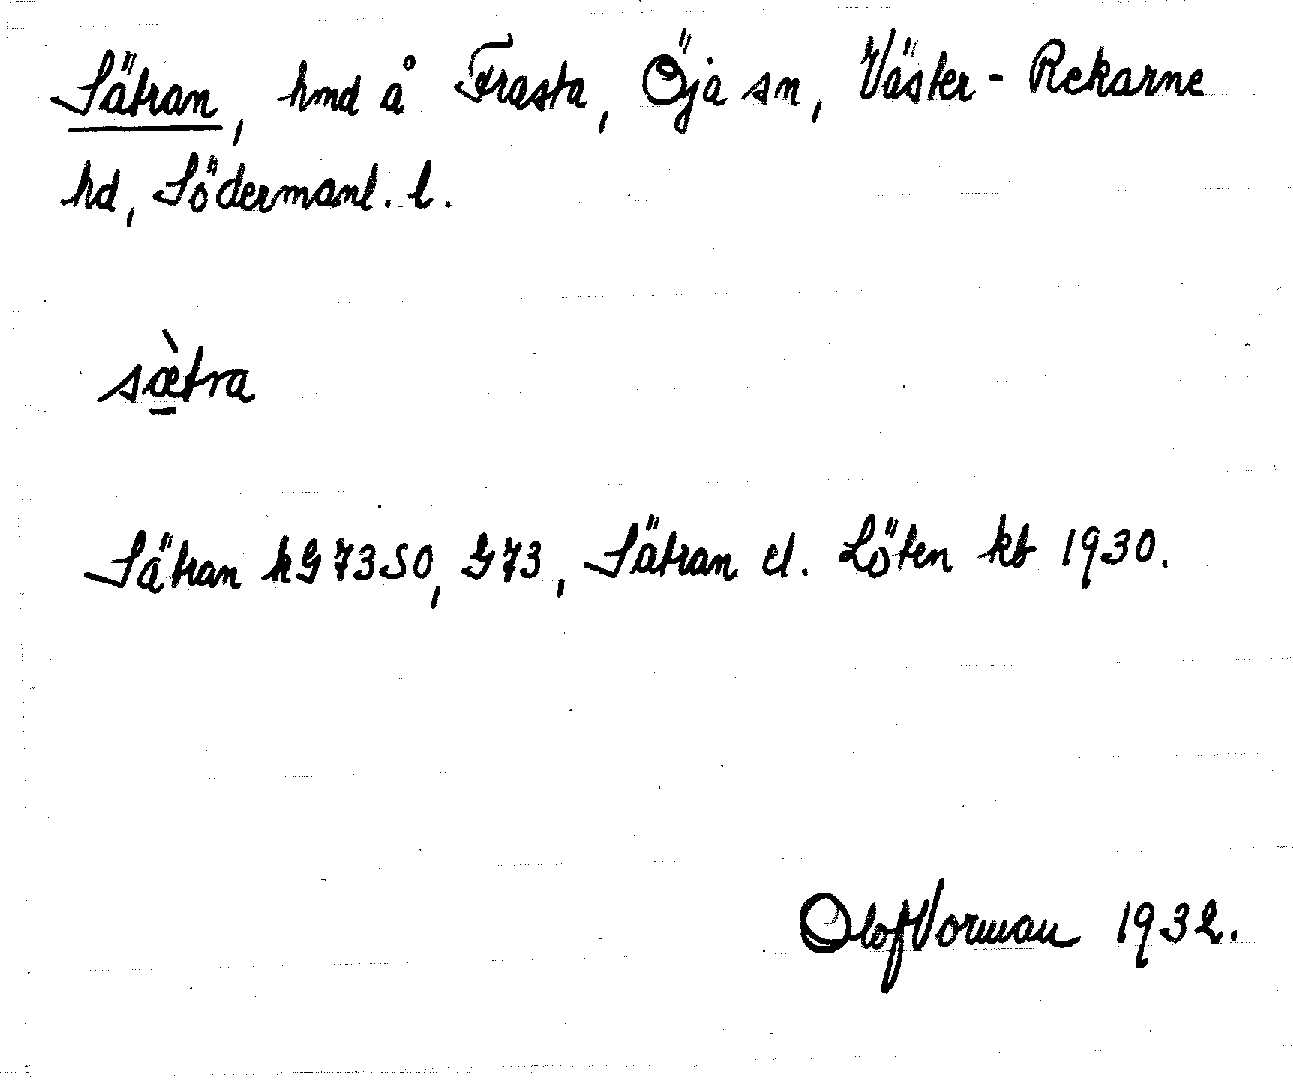 Sätran, hmd å Frasta, Öja sn, Väster-Rekarne
hd, Södermanl. l.
sæ̱̀tra
Sätran kG73SO, G73, Sätran el. Löten kb 1930.
Olof Vorman 1932.